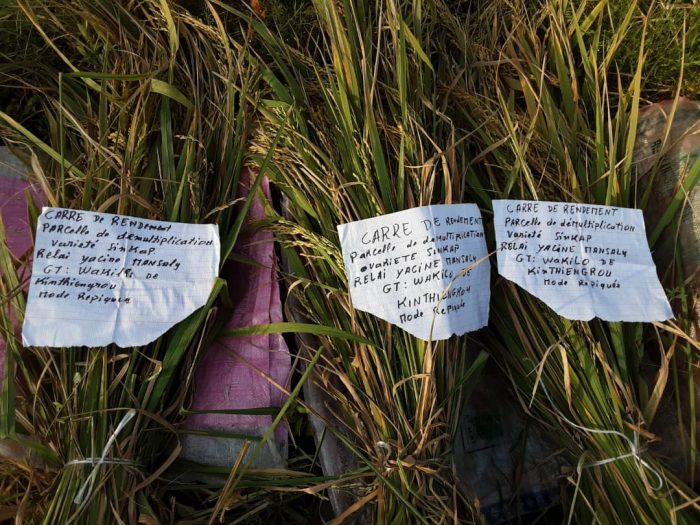 CARRE DE RENDEMENT
PARCELLE de démultiplication
Variété SINKAP
RELAI YACINE MANSALY
GT: WAKILO DE
KINTHIENGROU
Mode Repiqué
CARRE DE RENDEMENT
PARCELLE de démultiplication
VARIETE SINKAP
RELAI YACINE MANSALY
GT: WAKILO DE
KINTHIENGROU
Mode Repiqué
CARRE DE RENDEMENT
PARCELLE de démultiplication
VARIETE SINKAP
RELAI YACINE MANSALY
GT: WAKILO DE
KINTHIENGROU
Mode Repiqué